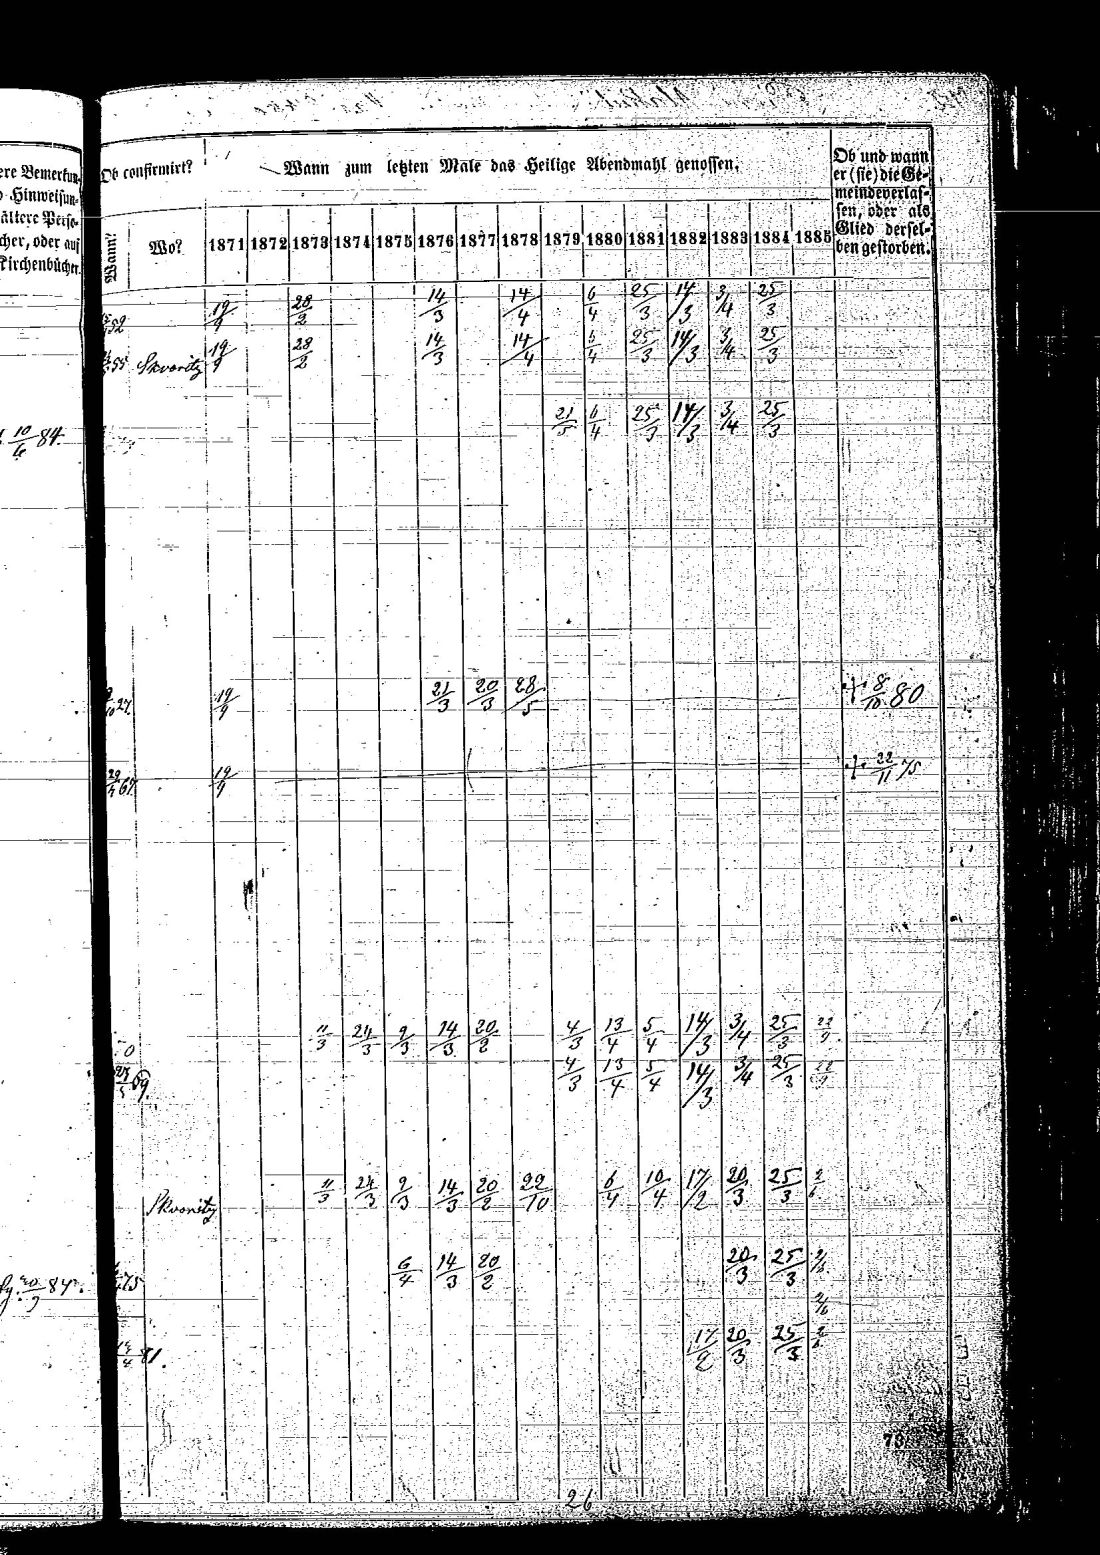 ere Bemerkun-
Hinweisun-
ältere Perso-
cher, oder auf
Kirchenbücher.
Ob confirmirt?
Wann zum letzten Male das Heilige Abendmahl genossen.
Ob und wann
er (sie) die Ge-
meinde verlas-
sen, oder als
Glied dersel-
ben gestorben.
Wann? Wo? 1871 1872 1873 1874 1875 1876 1877 1878 1879 1880 1881 1882 1883 1884 1885
52 19/9 28/2 14/3 14/4 6/4 25/3 14/3 3/4 25/3
55 Skvoritz 19/9 28/2 14/3 14/4 6/4 25/3 14/3 3/4 25/3
10/6 84. 21/5 6/4 25/3 14/3 3/4 25/3
27. 19/9 21/3 20/3 28/5 † 8/10 80
67. 19/9 † 22/11 75
11/3 24/3 9/3 14/3 20/2 4/3 13/4 5/4 14/3 3/4 25/3
59. 4/3 13/4 5/4 14/3 3/4 25/3
Skvoritz 11/3 24/3 9/3 14/3 20/2 22/10 6/4 10/4 17/2 20/3 25/3 2/6
84. 75 6/4 14/3 20/2 20/3 25/3 2/6
2/6
81. 17/2 20/3 25/3 2/6
73
26